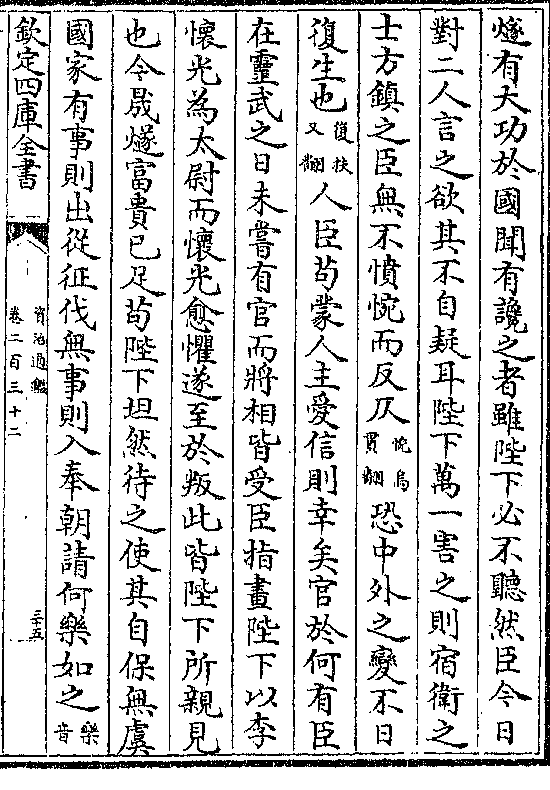 燧有大功於國聞有讒之者雖陛下必不聽然臣今日
對二人言之欲其不自疑耳陛下萬一害之則宿衛之
士方鎮之臣無不憤惋而反仄惋烏貫翻恐中外之變不日
復生也復扶又翻人臣苟蒙人主愛信則幸矣官於何有臣
在靈武之日未嘗有官而將相皆受臣指畫陛下以李
懷光為太尉而懷光愈懼遂至於叛此皆陛下所親見
也今晟燧富貴已足苟陛下坦然待之使其自保無虞
國家有事則出從征伐無事則入奉朝請何樂如之樂音
欽定四庫全書
資治通鑑
卷二百三十二
三十五